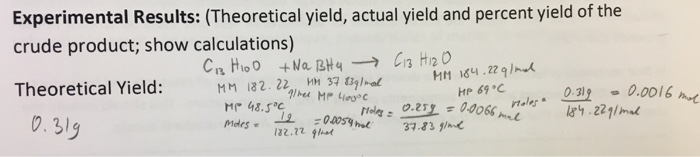 Experimental Results: (Theoretical yield, actual yield and percent yield of the
crude product; show calculations)
C13 H10 O + Na BH4 → C13 H12 O
Theoretical Yield: MM 182.22 g/mol MM 37.83 g/mol MM 184.22 g/mol
MP 48.5°C MP 400°C MP 69°C
0.31g Moles = 1g / 182.22 g/mol = 0.0054 mol Moles = 0.25g / 37.83 g/mol = 0.0066 mol Moles = 0.31g / 184.22 g/mol = 0.0016 mol